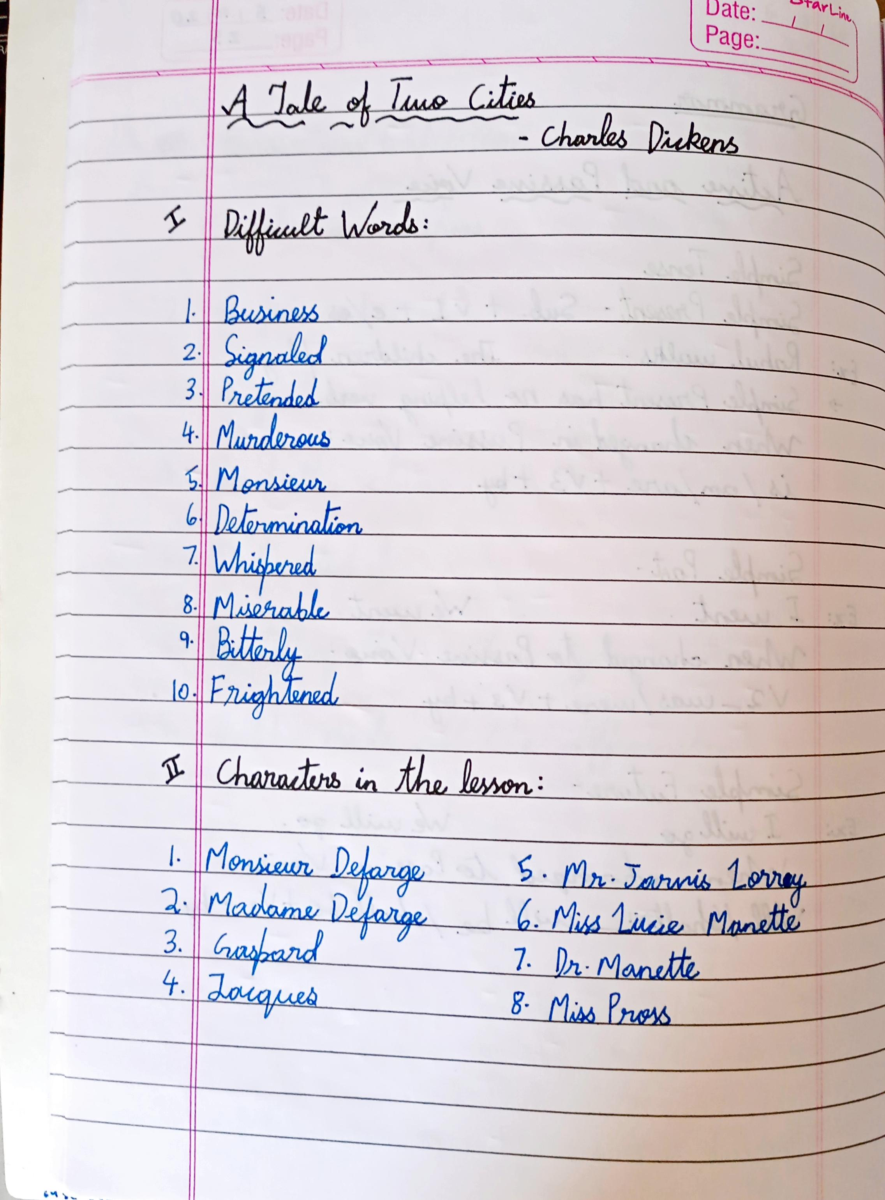 StarLine
Date: / /
Page:
A Tale of Two Cities
- Charles Dickens
I Difficult Words:
1. Business
2. Signaled
3. Pretended
4. Murderous
5. Monsieur
6. Determination
7. Whispered
8. Miserable
9. Bitterly
10. Frightened
II Characters in the lesson:
1. Monsieur Defarge
2. Madame Defarge
3. Gaspard
4. Jacques
5. Mr. Jarvis Lorray
6. Miss Lucie Manette
7. Dr. Manette
8. Miss Pross